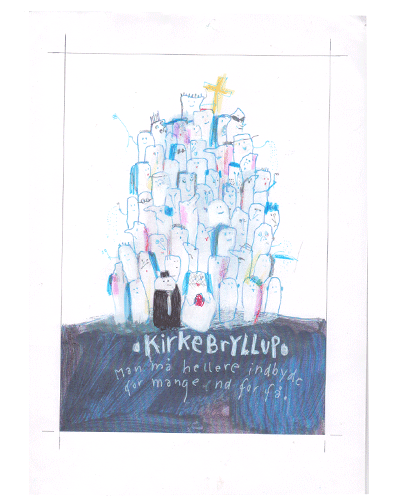 KirkeBrYLLUP
Man må hellere indbyde
for mange end for få.